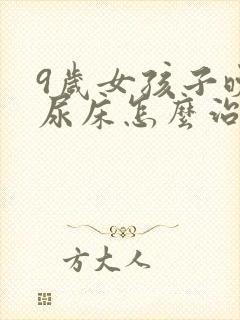 9歲女孩子晚
尿床怎麼治
方大人